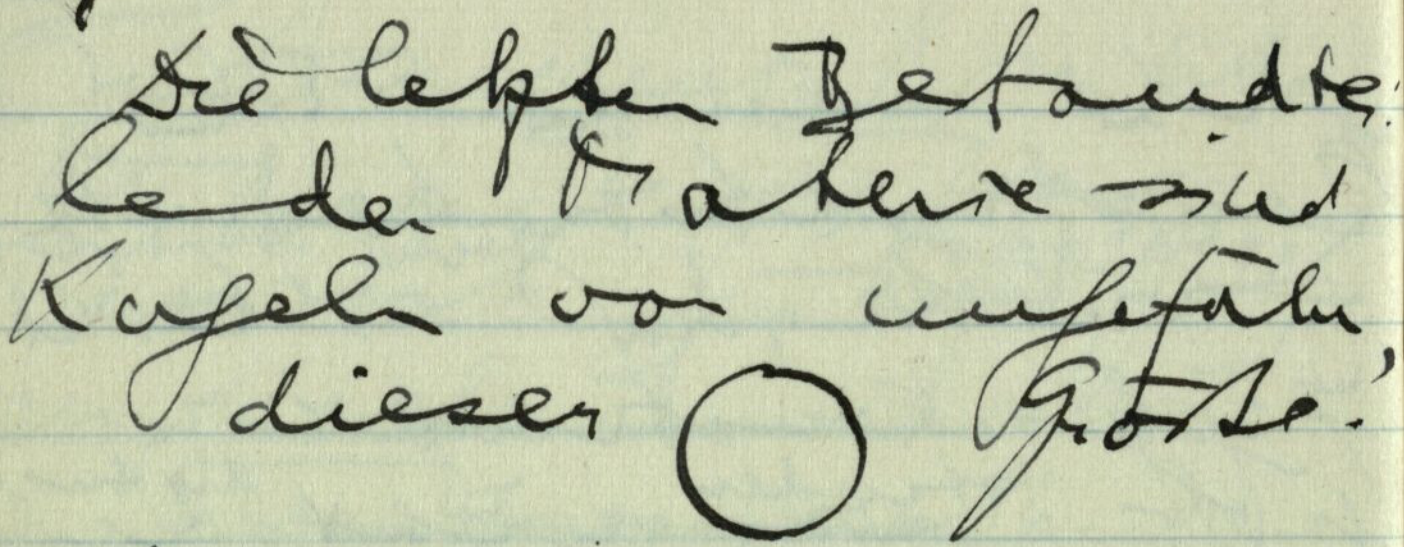 Die letzten Bestandtei
le der Materie sind
Kugeln von ungefähr
dieser Größe.'